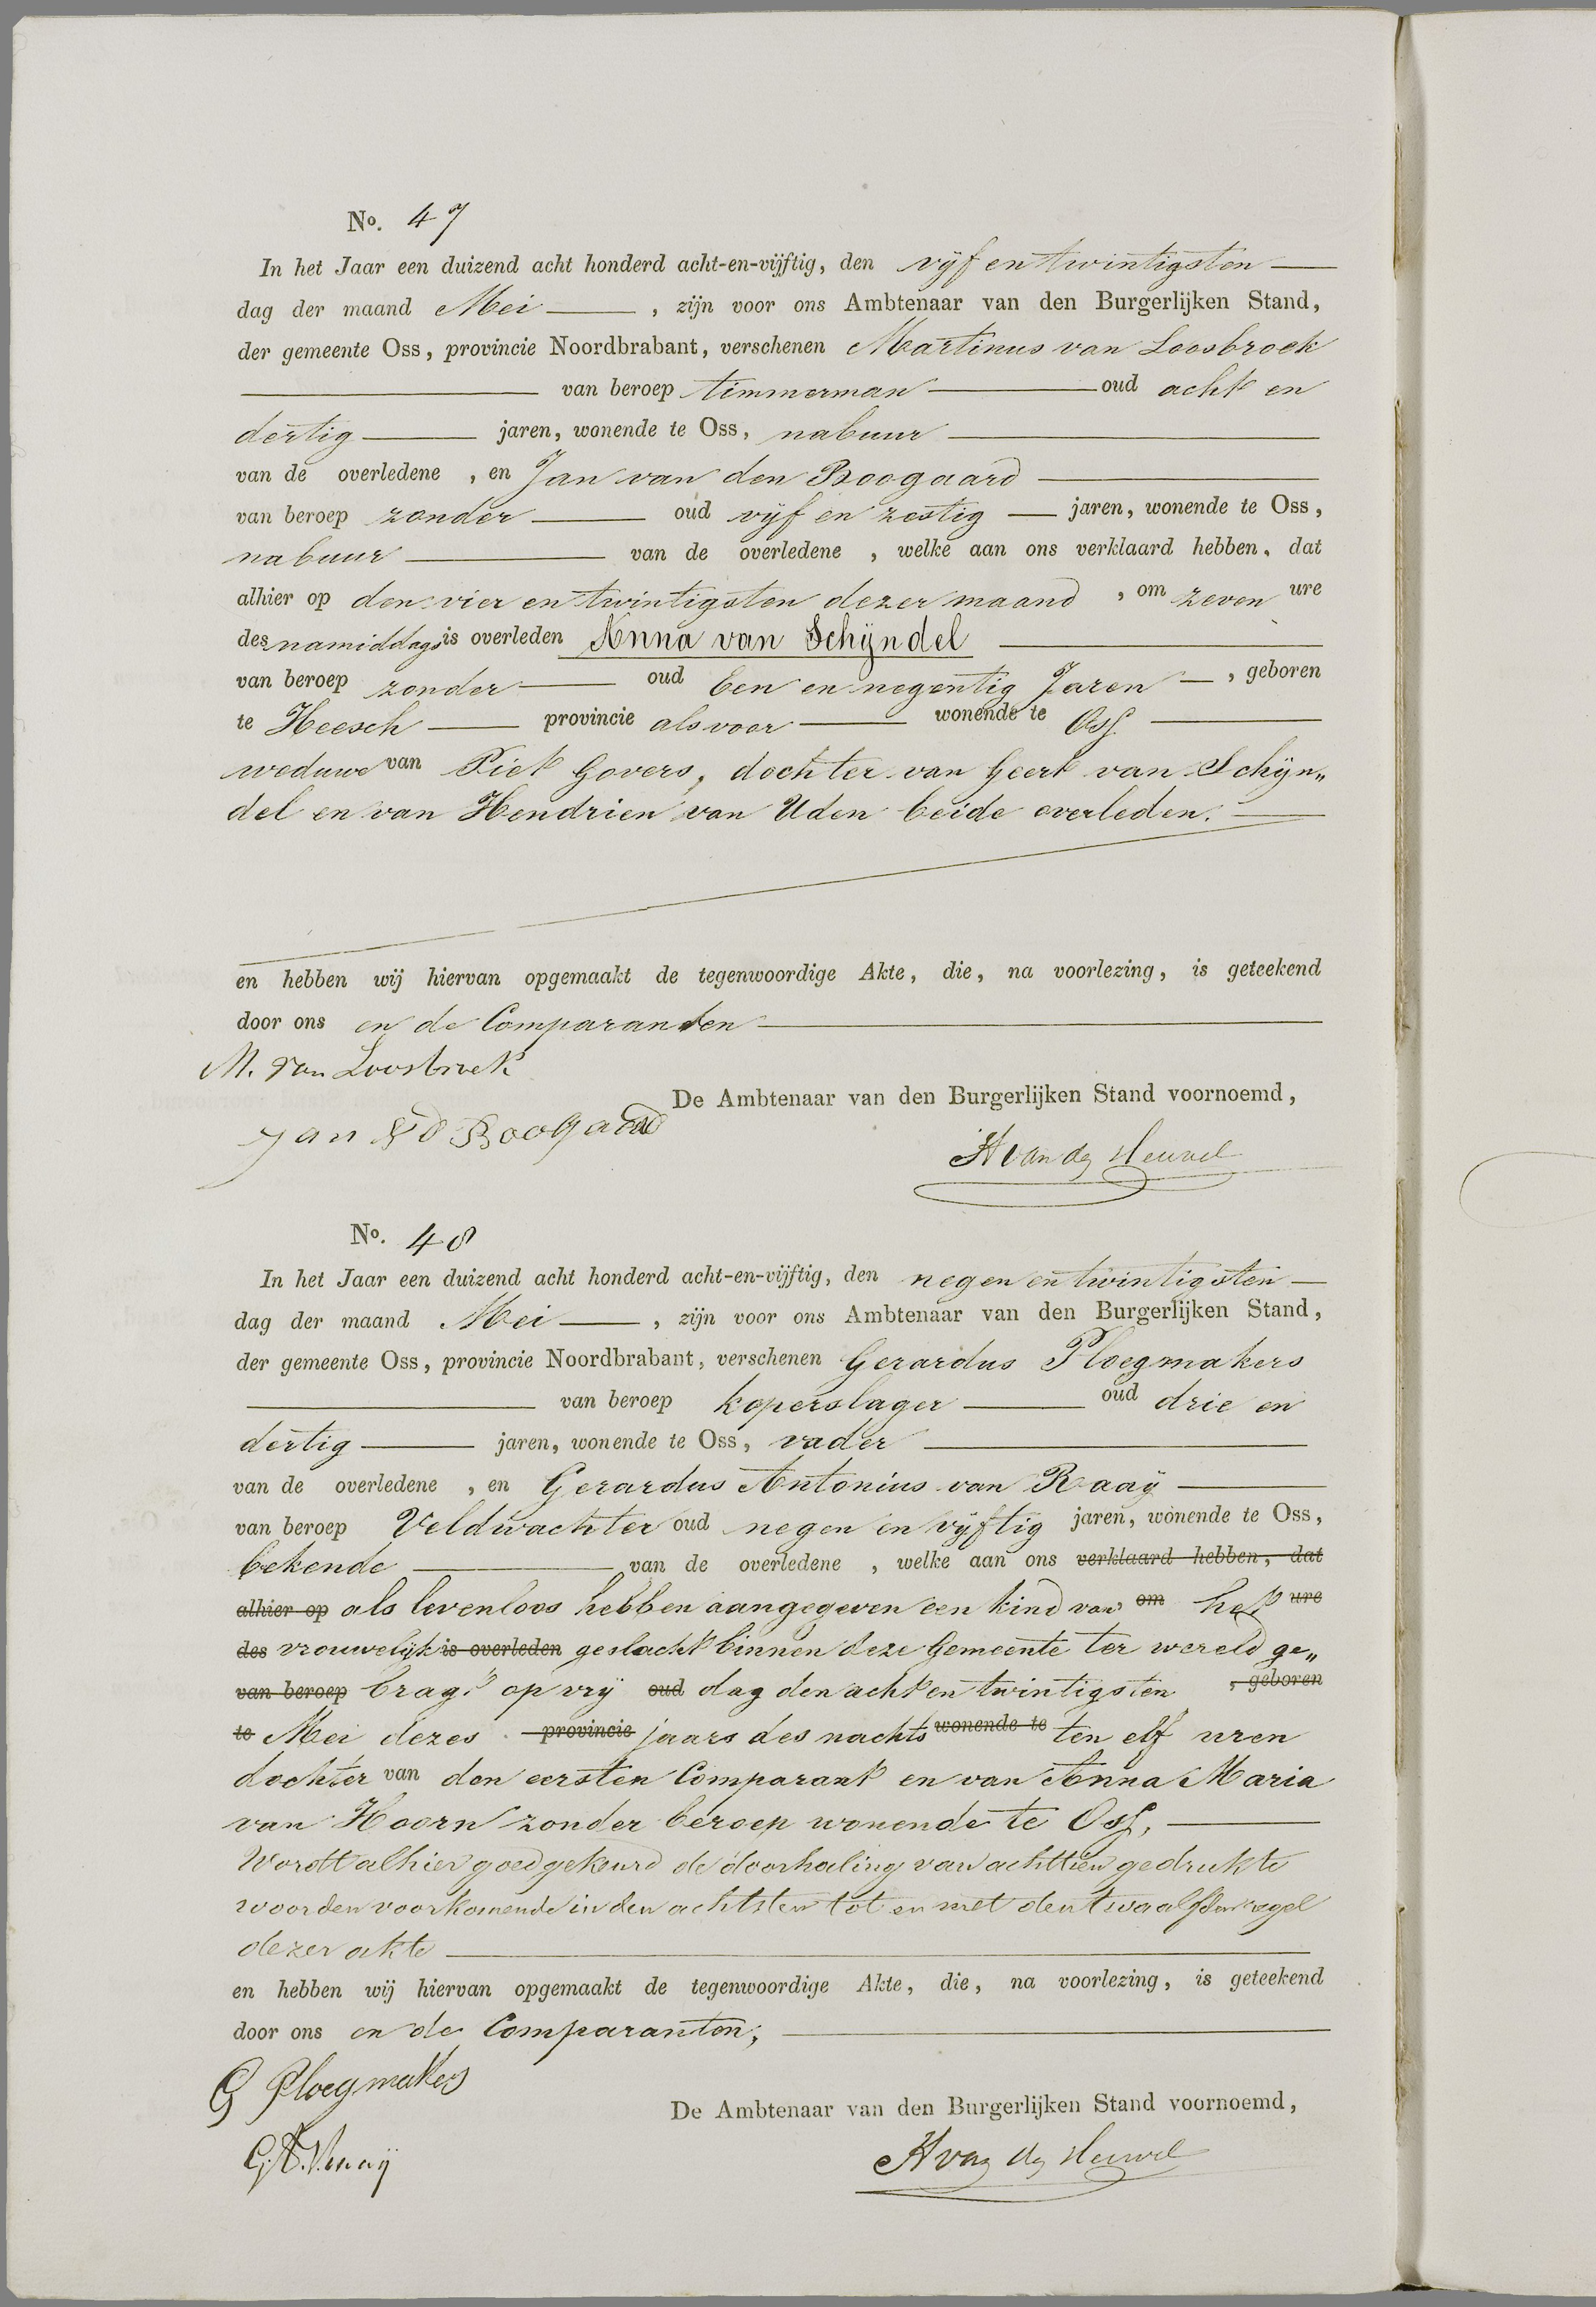 No. 47
In het Jaar een duizend acht honderd acht-en-vijftig, den vijf en twintigsten
dag der maand Mei , zijn voor ons Ambtenaar van den Burgerlijken Stand,
der gemeente Oss, provincie Noordbrabant, verschenen Martinus van Loosbroek
van beroep timmerman oud acht en
dertig jaren, wonende te Oss, nabuur
van de overledene , en Jan van den Boogaard
van beroep zonder oud vijf en zestig jaren, wonende te Oss,
nabuur van de overledene , welke aan ons verklaard hebben, dat
alhier op den vier en twintigsten dezer maand , om zeven ure
des namiddags is overleden Anna van Schijndel
van beroep zonder oud Een en negentig Jaren , geboren
te Heesch provincie als voor wonende te Oss.
weduwe van Piet Govers, dochter van Geert van Schijn„
del en van Hendrien van Uden beide overleden.
en hebben wij hiervan opgemaakt de tegenwoordige Akte, die, na voorlezing, is geteekend
door ons en de Comparanten
M. van Loosbroek
De Ambtenaar van den Burgerlijken Stand voornoemd,
Jan v d Boogaard
H van den Heuvel
No. 48
In het Jaar een duizend acht honderd acht-en-vijftig, den negen en twintigsten
dag der maand Mei , zijn voor ons Ambtenaar van den Burgerlijken Stand,
der gemeente Oss, provincie Noordbrabant, verschenen Gerardus Ploegmakers
van beroep koperslager oud drie en
dertig jaren, wonende te Oss, vader
van de overledene , en Gerardus Antonius van Raaij
van beroep Veldwachter oud negen en vijftig jaren, wonende te Oss,
bekende van de overledene , welke aan ons verklaard hebben, dat
alhier op als levenloos hebben aangegeven een kind van om het ure
des vrouwelijk is overleden geslacht binnen deze Gemeente ter wereld ge„
van beroep bragt op vrij oud dag den acht en twintigsten , geboren
te Mei dezes provincie jaars des nachts wonende te ten elf uren
dochter van den eersten Comparant en van Anna Maria
van Hoorn zonder beroep wonende te Oss,
Wordt alhier goedgekeurd de doorhaling van achttien gedrukte
woorden voorkomende in den achtsten tot en met den twaalfden regel
dezer akte
en hebben wij hiervan opgemaakt de tegenwoordige Akte, die, na voorlezing, is geteekend
door ons en de Comparanten,
G Ploegmakers
De Ambtenaar van den Burgerlijken Stand voornoemd,
G.A.V.Raaij
H van den Heuvel